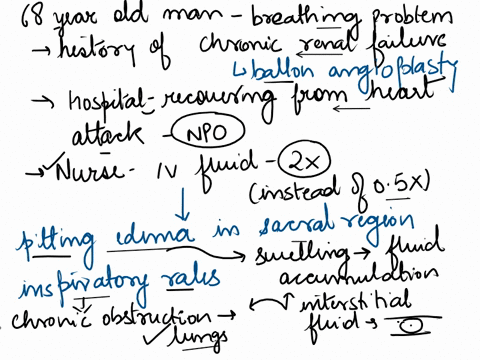 68 year old man - breathing problem
→ history of chronic renal failure
↳ ballon angioplasty
→ hospital - recovering from heart
attack - NPO
→ Nurse - IV fluid - 2x
(instead of 0.5x)
pitting edima in sacral region
→ swelling → fluid
accumulation
inspiratory rales
→ interstitial
chronic obstruction →
fluid →
lungs